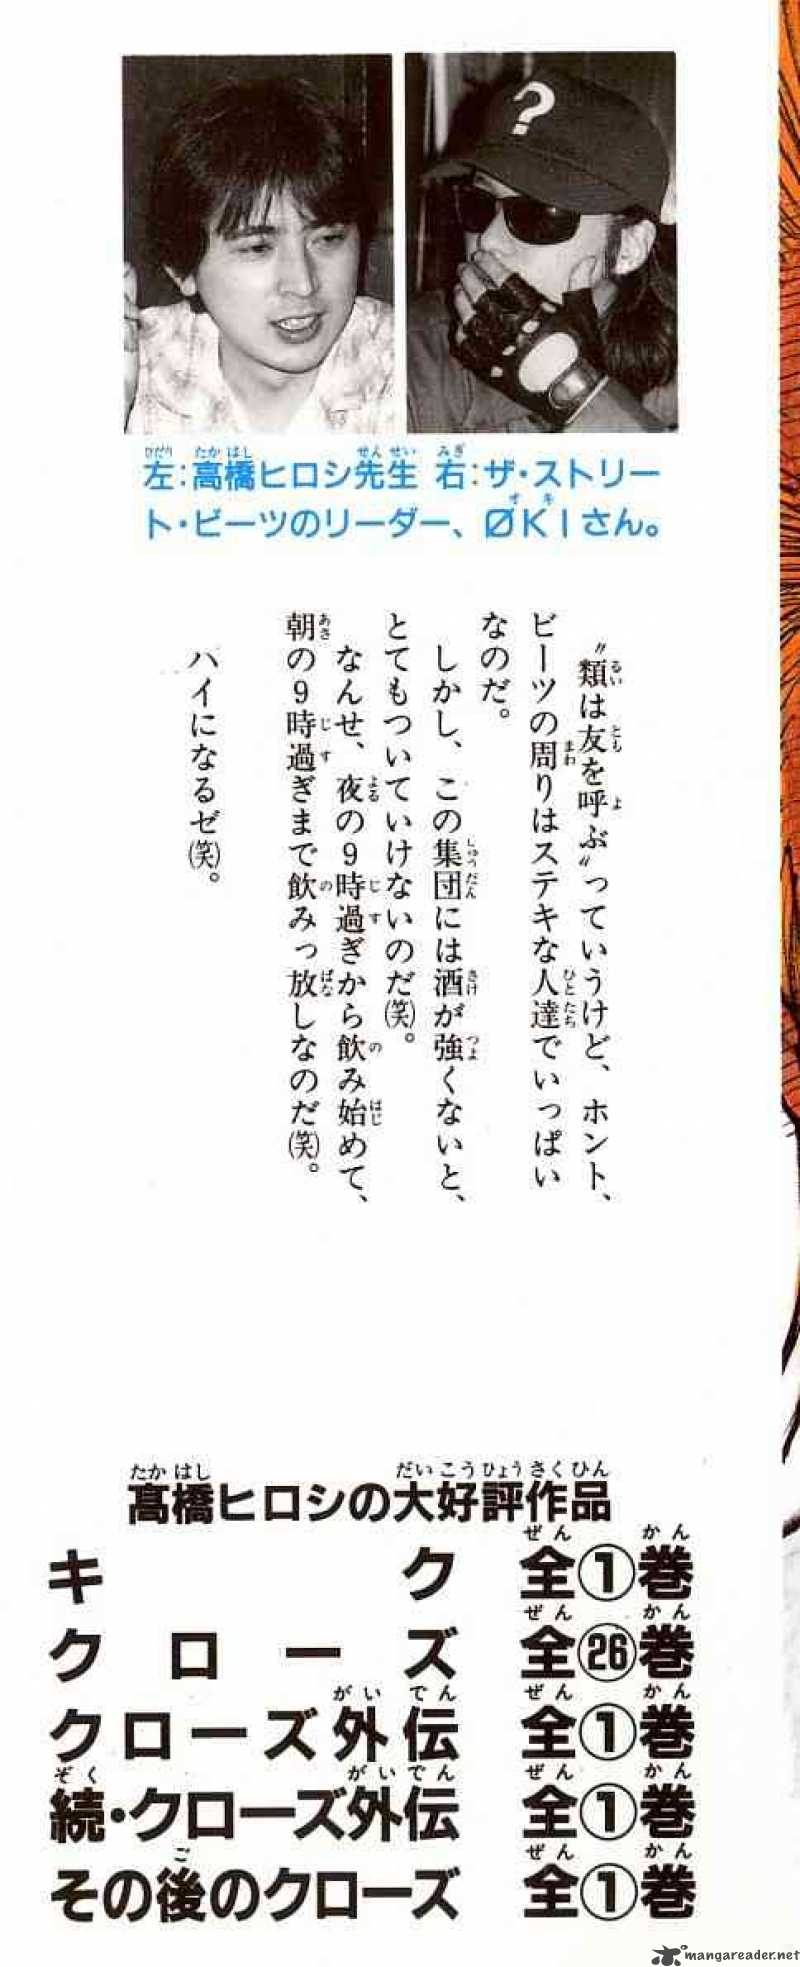 ?
左:高橋ヒロシ先生 右:ザ・ストリー
ト・ビーツのリーダー、ØKIさん。
〝類は友を呼ぶ〟っていうけど、ホント、
ビーツの周りはステキな人達でいっぱい
なのだ。
しかし、この集団には酒が強くないと、
とてもついていけないのだ(笑)。
なんせ、夜の9時過ぎから飲み始めて、
朝の9時過ぎまで飲みっ放しなのだ(笑)。
ハイになるゼ(笑)。
髙橋ヒロシの大好評作品
キク 全①巻
クローズ 全㉖巻
クローズ外伝 全①巻
続・クローズ外伝 全①巻
その後のクローズ 全①巻
mangareader.net